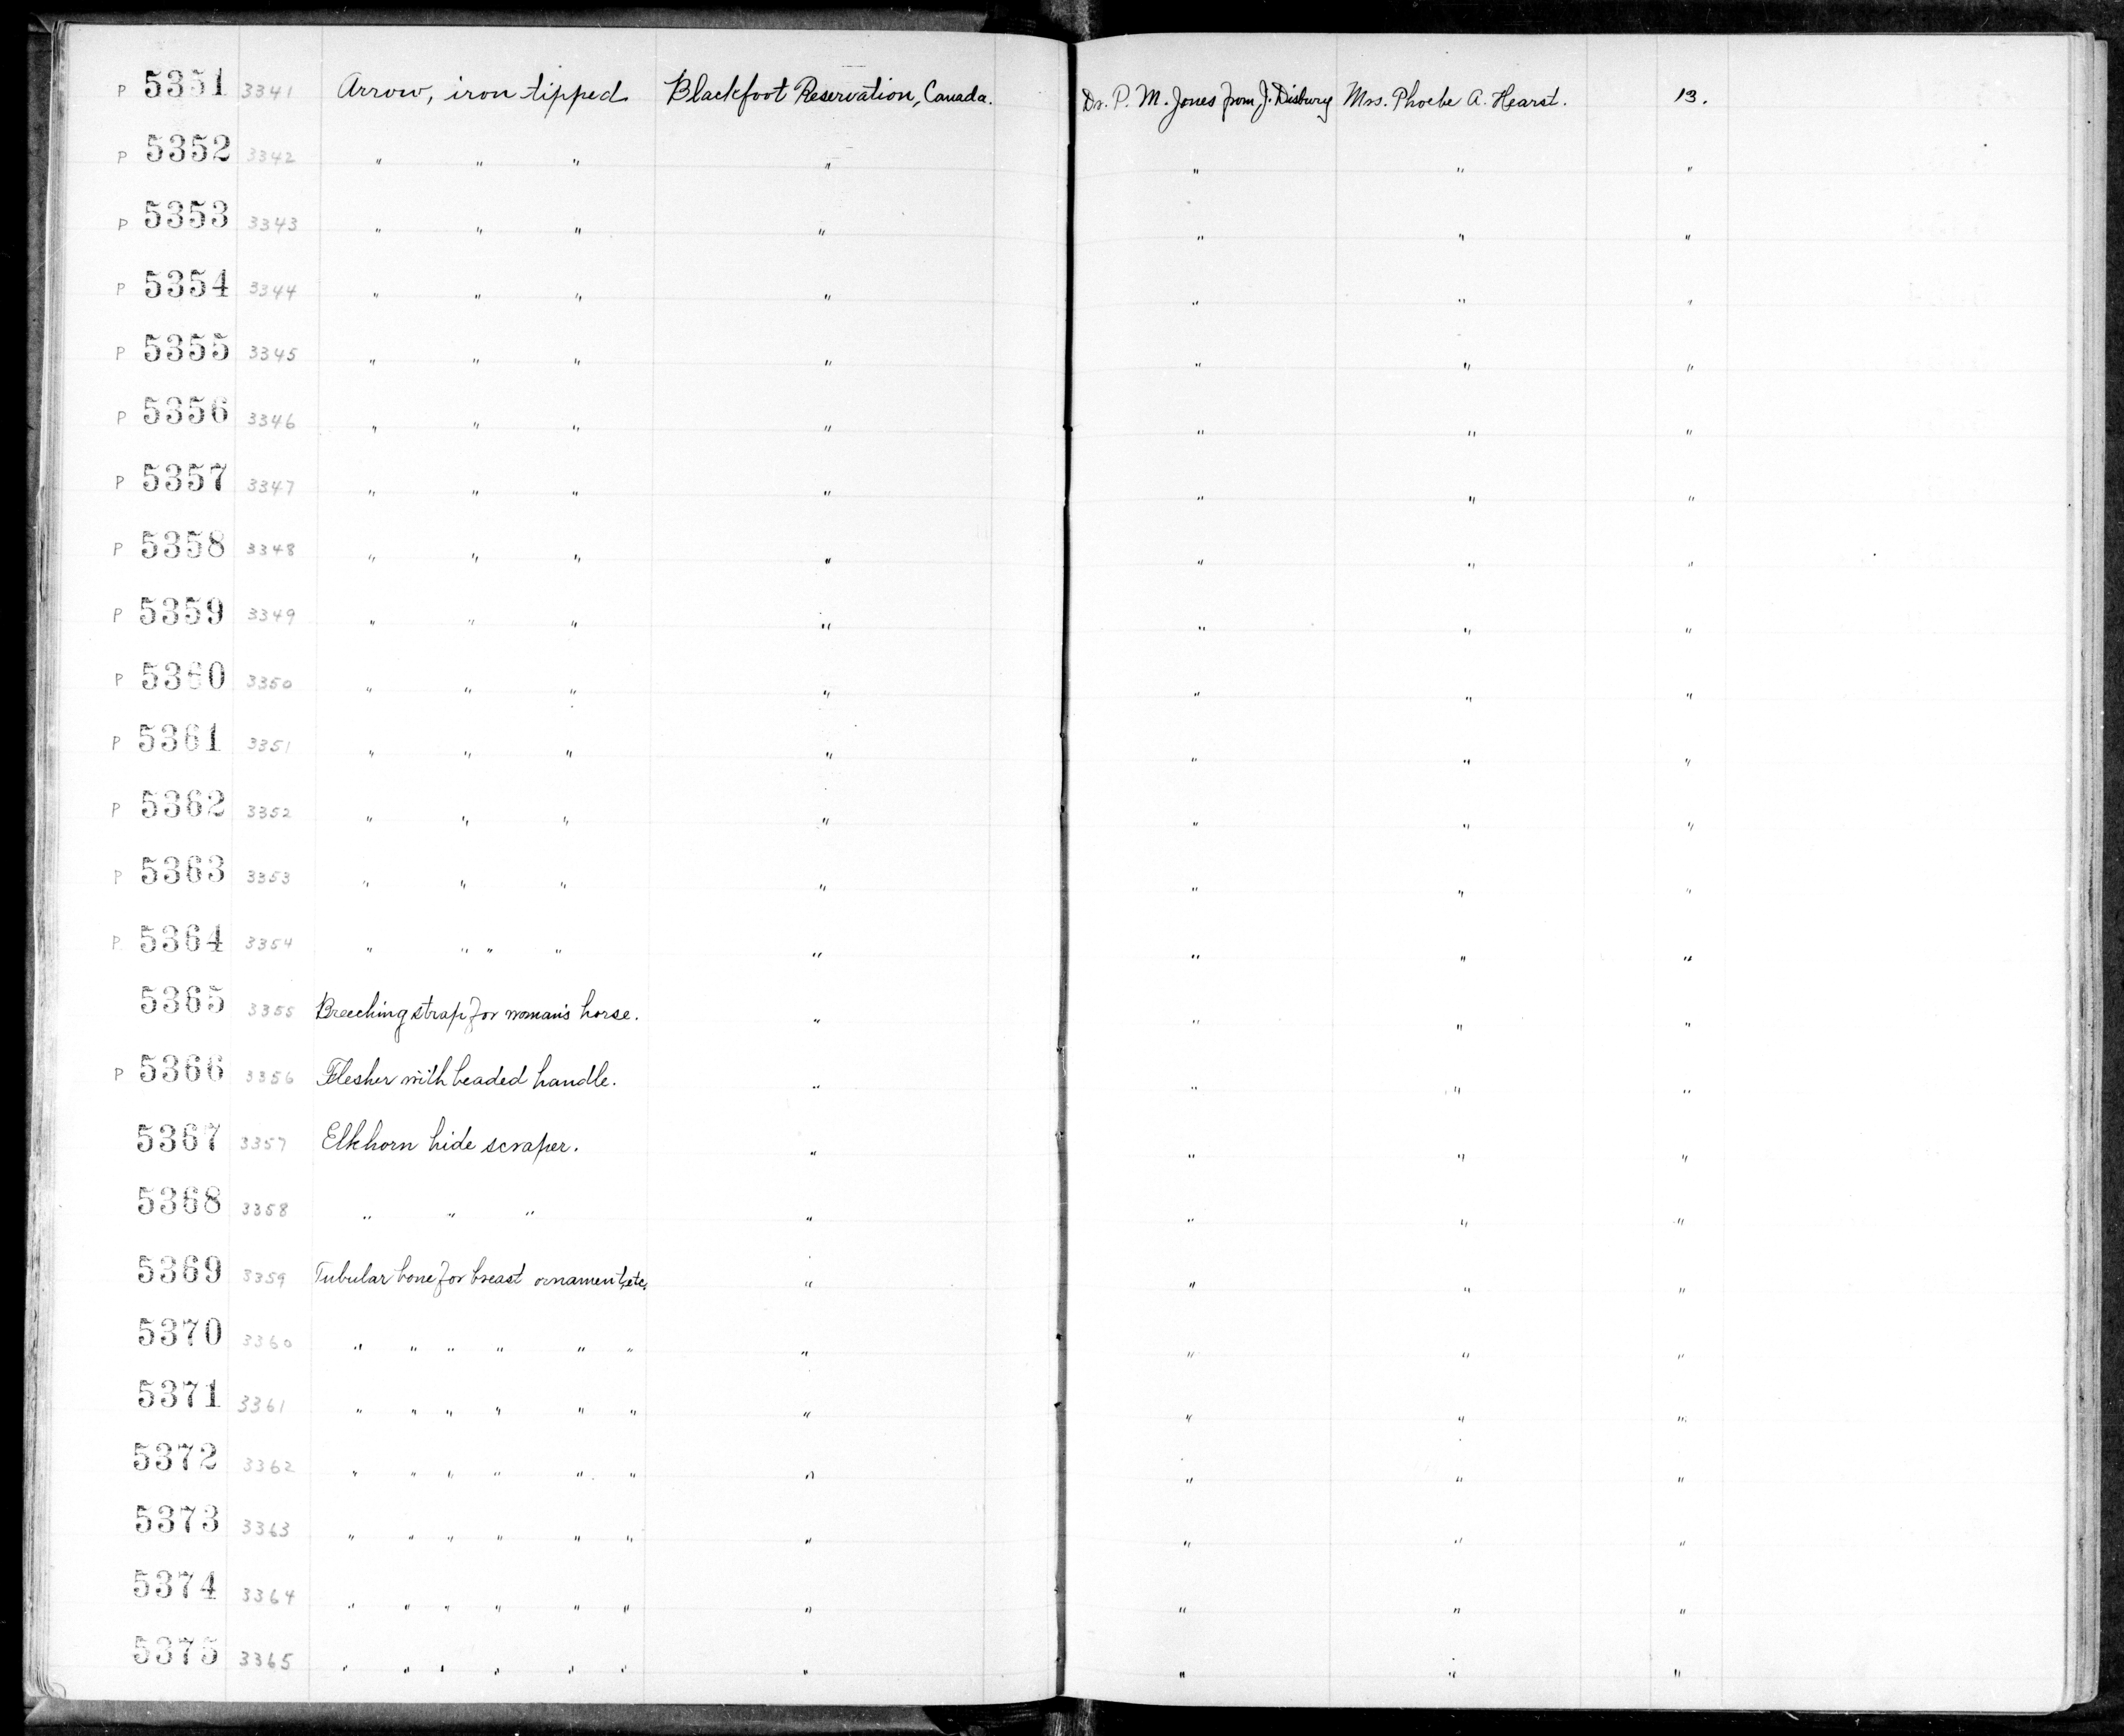 P 5351 3341 Arrow, iron tipped Blackfoot Reservation, Canada. Dr. P. M. Jones from J. Disbury Mrs. Phoebe A. Hearst. 13.
P 5352 3342 " " " " " " "
P 5353 3343 " " " " " " "
P 5354 3344 " " " " " " "
P 5355 3345 " " " " " " "
P 5356 3346 " " " " " " "
P 5357 3347 " " " " " " "
P 5358 3348 " " " " " " "
P 5359 3349 " " " " " " "
P 5360 3350 " " " " " " "
P 5361 3351 " " " " " " "
P 5362 3352 " " " " " " "
P 5363 3353 " " " " " " "
P 5364 3354 " " " " " " " "
5365 3355 Breeching strap for woman's horse. " " " "
P 5366 3356 Flesher with beaded handle. " " " "
5367 3357 Elkhorn hide scraper. " " " "
5368 3358 " " " " " " "
5369 3359 Tubular bone for breast ornament, etc. " " " "
5370 3360 " " " " " " " " " "
5371 3361 " " " " " " " " " "
5372 3362 " " " " " " " " " "
5373 3363 " " " " " " " " " "
5374 3364 " " " " " " " " " "
5375 3365 " " " " " " " " " "